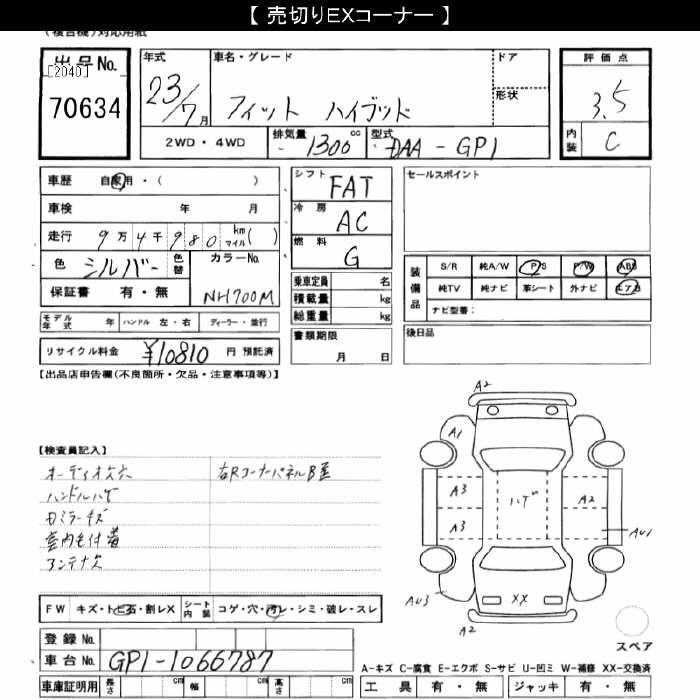 【 売切りEXコーナー 】
(複合機)対応用紙
出品No.
[2040]
70634
年式
23/7月
車名・グレード
フィット ハイブッド
ドア
形状
2WD・4WD
排気量 1300 cc
型式 DAA-GP1
評価点
3.5
内装 C
車歴 自家用・( )
車検 年 月
走行 9万4千980 km マイル( )
色 シルバー 色替
カラーNo. NH700M
保証書 有・無
モデル年式 年 ハンドル 左・右 ディーラー・並行
リサイクル料金 ¥10810 円 預託済
シフト FAT
冷房 AC
燃料 G
乗車定員 名
積載量 kg
総重量 kg
書類期限
月 日
セールスポイント
装備品
S/R 純A/W P/S P/W ABS
純TV 純ナビ 革シート 外ナビ エアB
ナビ型番:
後日品
【出品店申告欄(不良箇所・欠品・注意事項等)】
【検査員記入】
オーディオ欠穴
右Rコーナーパネル
ハンドルハゲ
ミラーキズ
室内毛付着
アンテナ欠
FW キズ・トビ石・割レX シート内装 コゲ・穴・汚レ・シミ・破レ・スレ
登録No.
車台No. GP1-1066787
車庫証明用 長さ cm 幅 cm 高さ cm
A2
A1
A3
ハゲ
A2
A3
AU1
AU3
XX
A2
スペア
A-キズ C-腐食 E-エクボ S-サビ U-凹ミ W-補修 XX-交換済
工具 有・無 ジャッキ 有・無